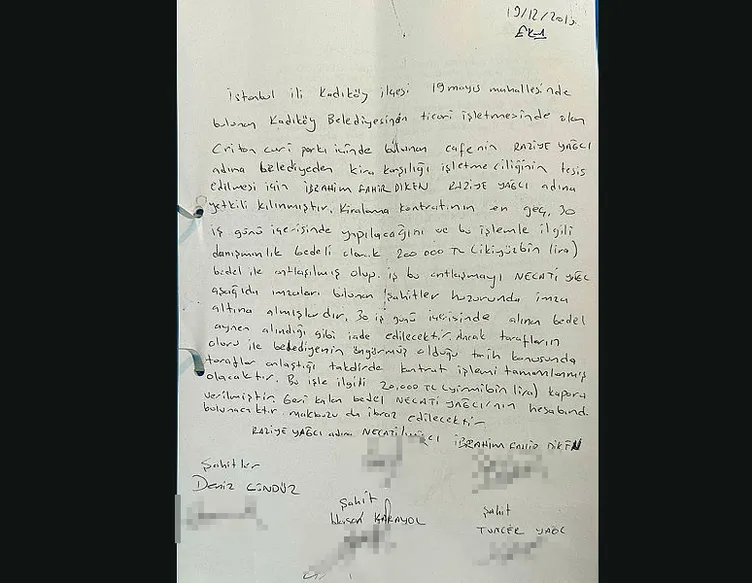 19/12/201
Ek-1
İstanbul ili Kadıköy ilçesi 19 mayıs mahallesinde
bulunan Kadıköy Belediyesinin ticari işletmesinde olan
Criton curi parkı içinde bulunan cafenin RAZİYE YAĞCI
adına belediyeden kira karşılığı işletmeciliğinin tesis
edilmesi için İBRAHİM FAHİR DİKEN RAZİYE YAĞCI adına
yetkili kılınmıştır. Kiralama kontratının en geç, 30
iş günü içerisinde yapılacağını ve bu işlemle ilgili
danışmanlık bedeli olarak 200 000 TL (ikiyüzbin lira)
bedel ile antlaşılmış olup. iş bu antlaşmayı NECATİ YAĞC
aşağıda imzaları bulunan şahitler huzurunda imza
altına almışlardır. 30 iş günü içerisinde alınan bedel
aynen alındığı gibi iade edilecektir. Ancak tarafların
oluru ile belediyenin öngörmüş olduğu tarih konusunda
taraflar anlaştığı takdirde kontrat işlemi tamamlanmış
olacaktır. Bu işle ilgili 20.000 TL (yirmibin lira) kapora
verilmiştir. Geri kalan bedel NECATİ YAĞCI'nın hesabınd
bulunacaktır makbuzu da ibraz edilecektir
RAZİYE YAĞCI adına NECATİ YAĞCI İBRAHİM FAHİR DİKEN
Şahitler
Deniz GÜNDÜZ
Şahit
KARAYOL
Şahit
TUNCER YAĞC